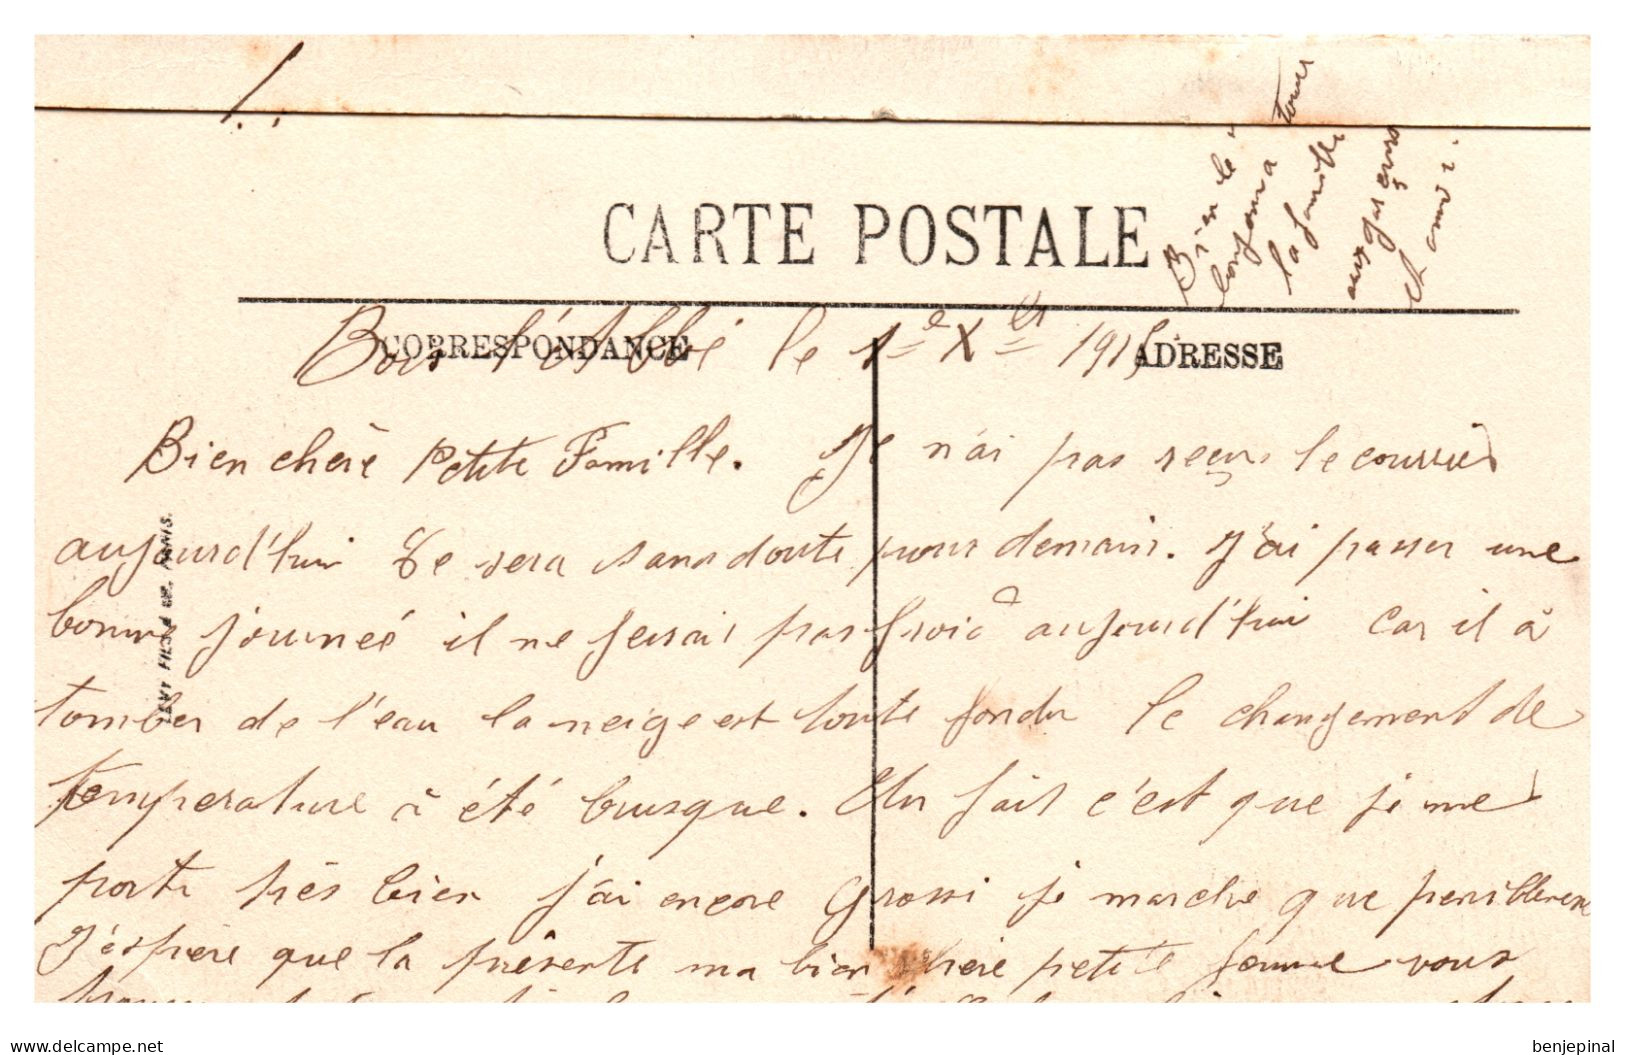 Bien le
bonjour a toute
la famille
aux
et amis.
CARTE POSTALE
CORRESPONDANCE
ADRESSE
Bois l'Abbé le 1e Xbre 191
Bien chère Petite Famille. Je n'ai pas reçus le courrier
aujourd'hui Se sera sans doute pour demain. J'ai passer une
bonne journeé il ne fesais pas froid aujourd'hui car il à
tomber de l'eau la neige est toute fondu le changement de
temperature à été brusque. Un fait c'est que je me
porte très bien j'ai encore Grossi je marche que peniblement
J'éspère que la présente ma bien chère petite femme vous
LEVY FILS & CIE. PARIS.
delcampe.net
benjepinal